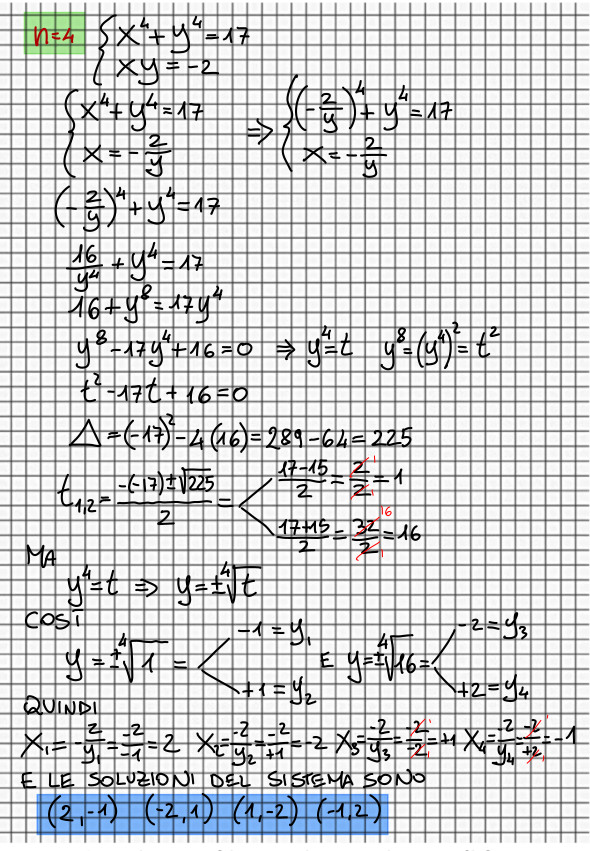 n=4 { x⁴+y⁴=17
xy=-2
{ x⁴+y⁴=17 ⇒ { (-2/y)⁴+y⁴=17
x=-2/y x=-2/y
(-2/y)⁴+y⁴=17
16/y⁴+y⁴=17
16+y⁸=17y⁴
y⁸-17y⁴+16=0 ⇒ y⁴=t y⁸=(y⁴)²=t²
t²-17t+16=0
△=(-17)²-4(16)=289-64=225
t₁,₂=(-(-17)±√225)/2= (17-15)/2=2/2=1
(17+15)/2=32/2=16
MA
y⁴=t ⇒ y=±⁴√t
COSÌ
y=±⁴√1= -1=y₁ E y=±⁴√16= -2=y₃
+1=y₂ +2=y₄
QUINDI
X₁=-2/y₁=-2/-1=2 X₂=-2/y₂=-2/+1=-2 X₃=-2/y₃=-2/-2=+1 X₄=-2/y₄=-2/+2=-1
E LE SOLUZIONI DEL SISTEMA SONO
(2,-1) (-2,1) (1,-2) (-1,2)